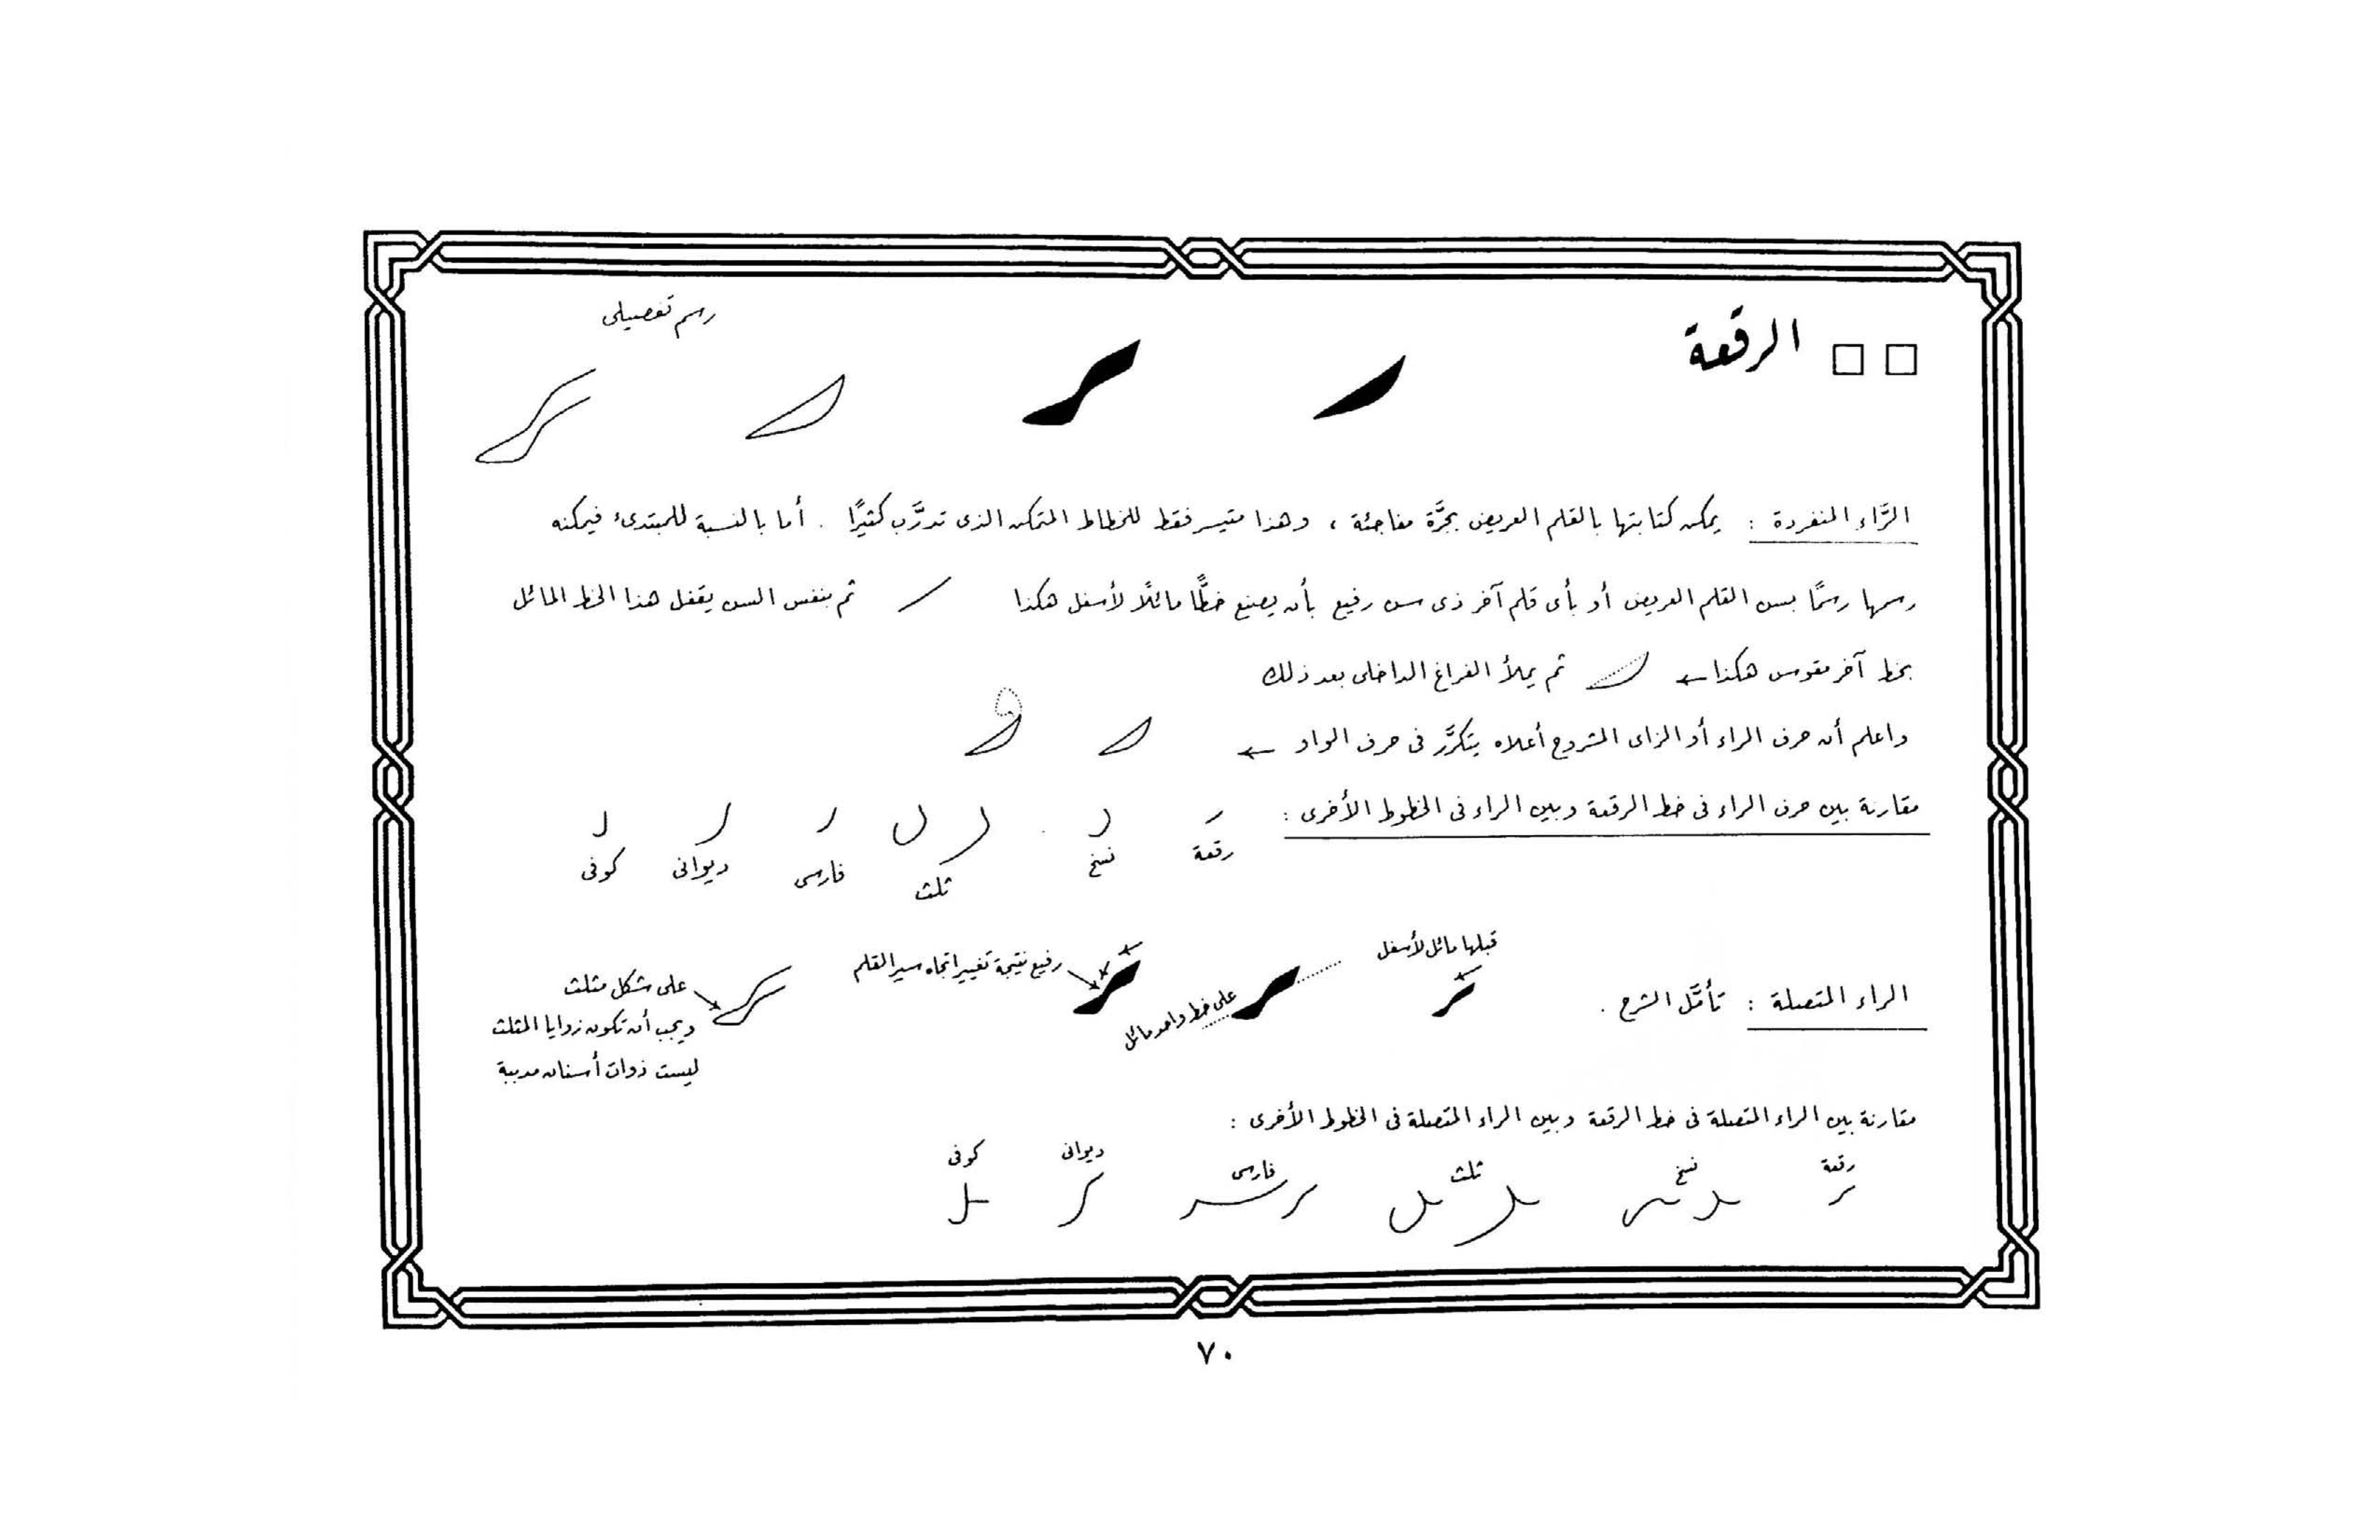 الرقعة
رسم تفصيلى
الرَّاء المنفردة : يمكن كتابتها بالقلم العريض بجرَّة مفاجئة ، وهذا متيسر فقط للخطاط المتمكن الذى تدرَّب كثيرًا . أما بالنسبة للمبتدىء فيمكنه
رسمها رسمًا بسن القلم العريض أو بأى قلم آخر ذى سن رفيع بأن يصنع خطًّا مائلًا لأسفل هكذا ثم بنفس السن يقفل هذا الخط المائل
بخط آخر مقوس هكذا ثم يملأ الفراغ الداخلى بعد ذلك
واعلم أن حرف الراء أو الزاى المشروح أعلاه يتكرَّر فى حرف الواو
مقارنة بين حرف الراء فى خط الرقعة وبين الراء فى الخطوط الأخرى :
رقعة نسخ ثلث فارسى ديوانى كوفى
الراء المتصلة : تأمَّل الشرح .
قبلها مائل لأسفل
على خط واحد مائل
رفيع نتيجة تغيير اتجاه سير القلم
على شكل مثلث
ويجب أن تكون زوايا المثلث
ليست ذوات أسنان مدببة
مقارنة بين الراء المتصلة فى خط الرقعة وبين الراء المتصلة فى الخطوط الأخرى :
رقعة نسخ ثلث فارسى ديوانى كوفى
٧٠